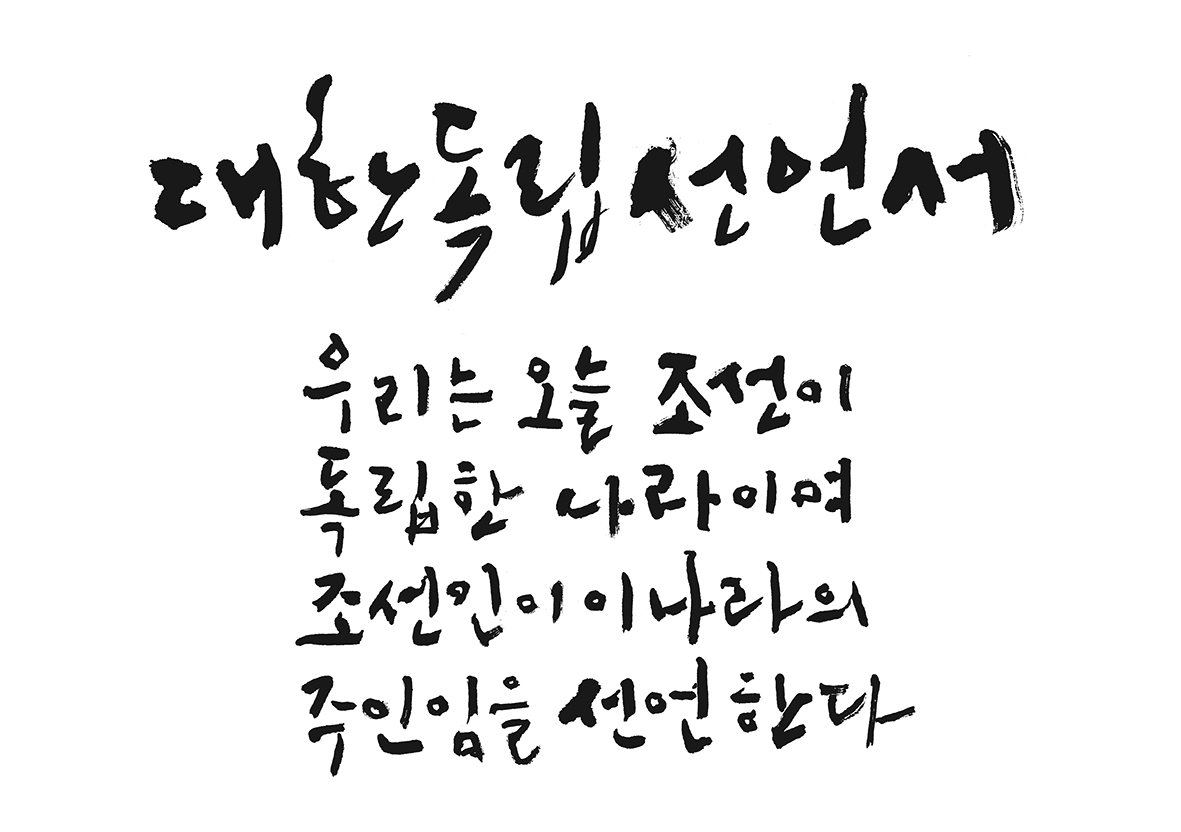 대한독립선언서
우리는 오늘 조선이
독립한 나라이며
조선인이 이 나라의
주인임을 선언한다